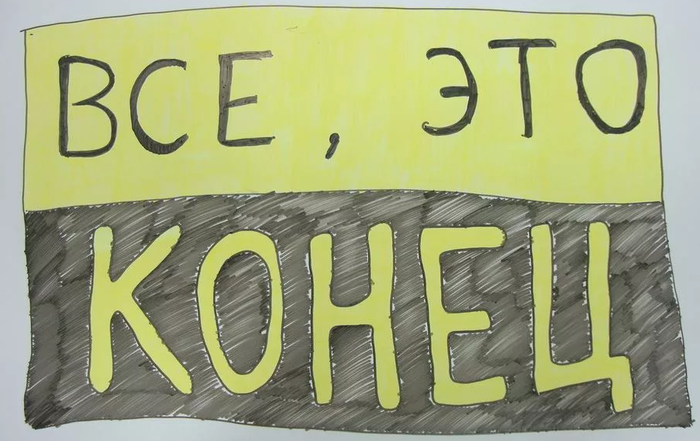 ВСЕ, ЭТО
КОНЕЦ